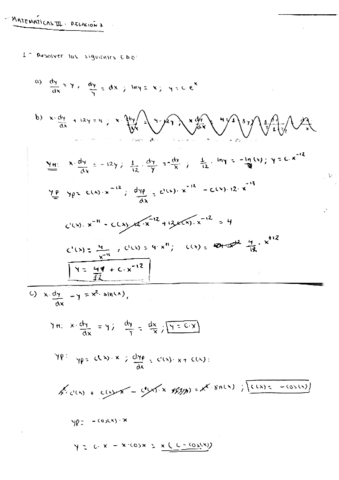 - MATEMÁTICAS III. RELACIÓN 2
1.- Resolver las siguientes EDO:
a) dy/dx = y, dy/y = dx; lny = x; y = C·e^x
b) x·dy/dx + 12y = 4,
yH: x·dy/dx = -12y; 1/12·dy/y = -dx/x; 1/12·lny = -ln(x); y = C·x^-12
yp: yp = C(x)·x^-12; dyp/dx = C'(x)·x^-12 - C(x)·12·x^-13
C'(x)·x^-11 - C(x)·12·x^-12 + 12·C(x)·x^-12 = 4
C'(x) = 4/x^-11, C'(x) = 4·x^11; C(x) = 4/12·x^+12
y = 4/12 + C·x^-12
c) x·dy/dx - y = x²·sin(x),
yH: x·dy/dx = y; dy/y = dx/x; y = C·x
yp: yp = C(x)·x; dyp/dx = C'(x)·x + C(x):
x²·C'(x) + C(x)·x - C(x)·x = x²·sin(x); C(x) = -cos(x)
yp = -cos(x)·x
y = C·x - x·cosx = x(C - cos(x))